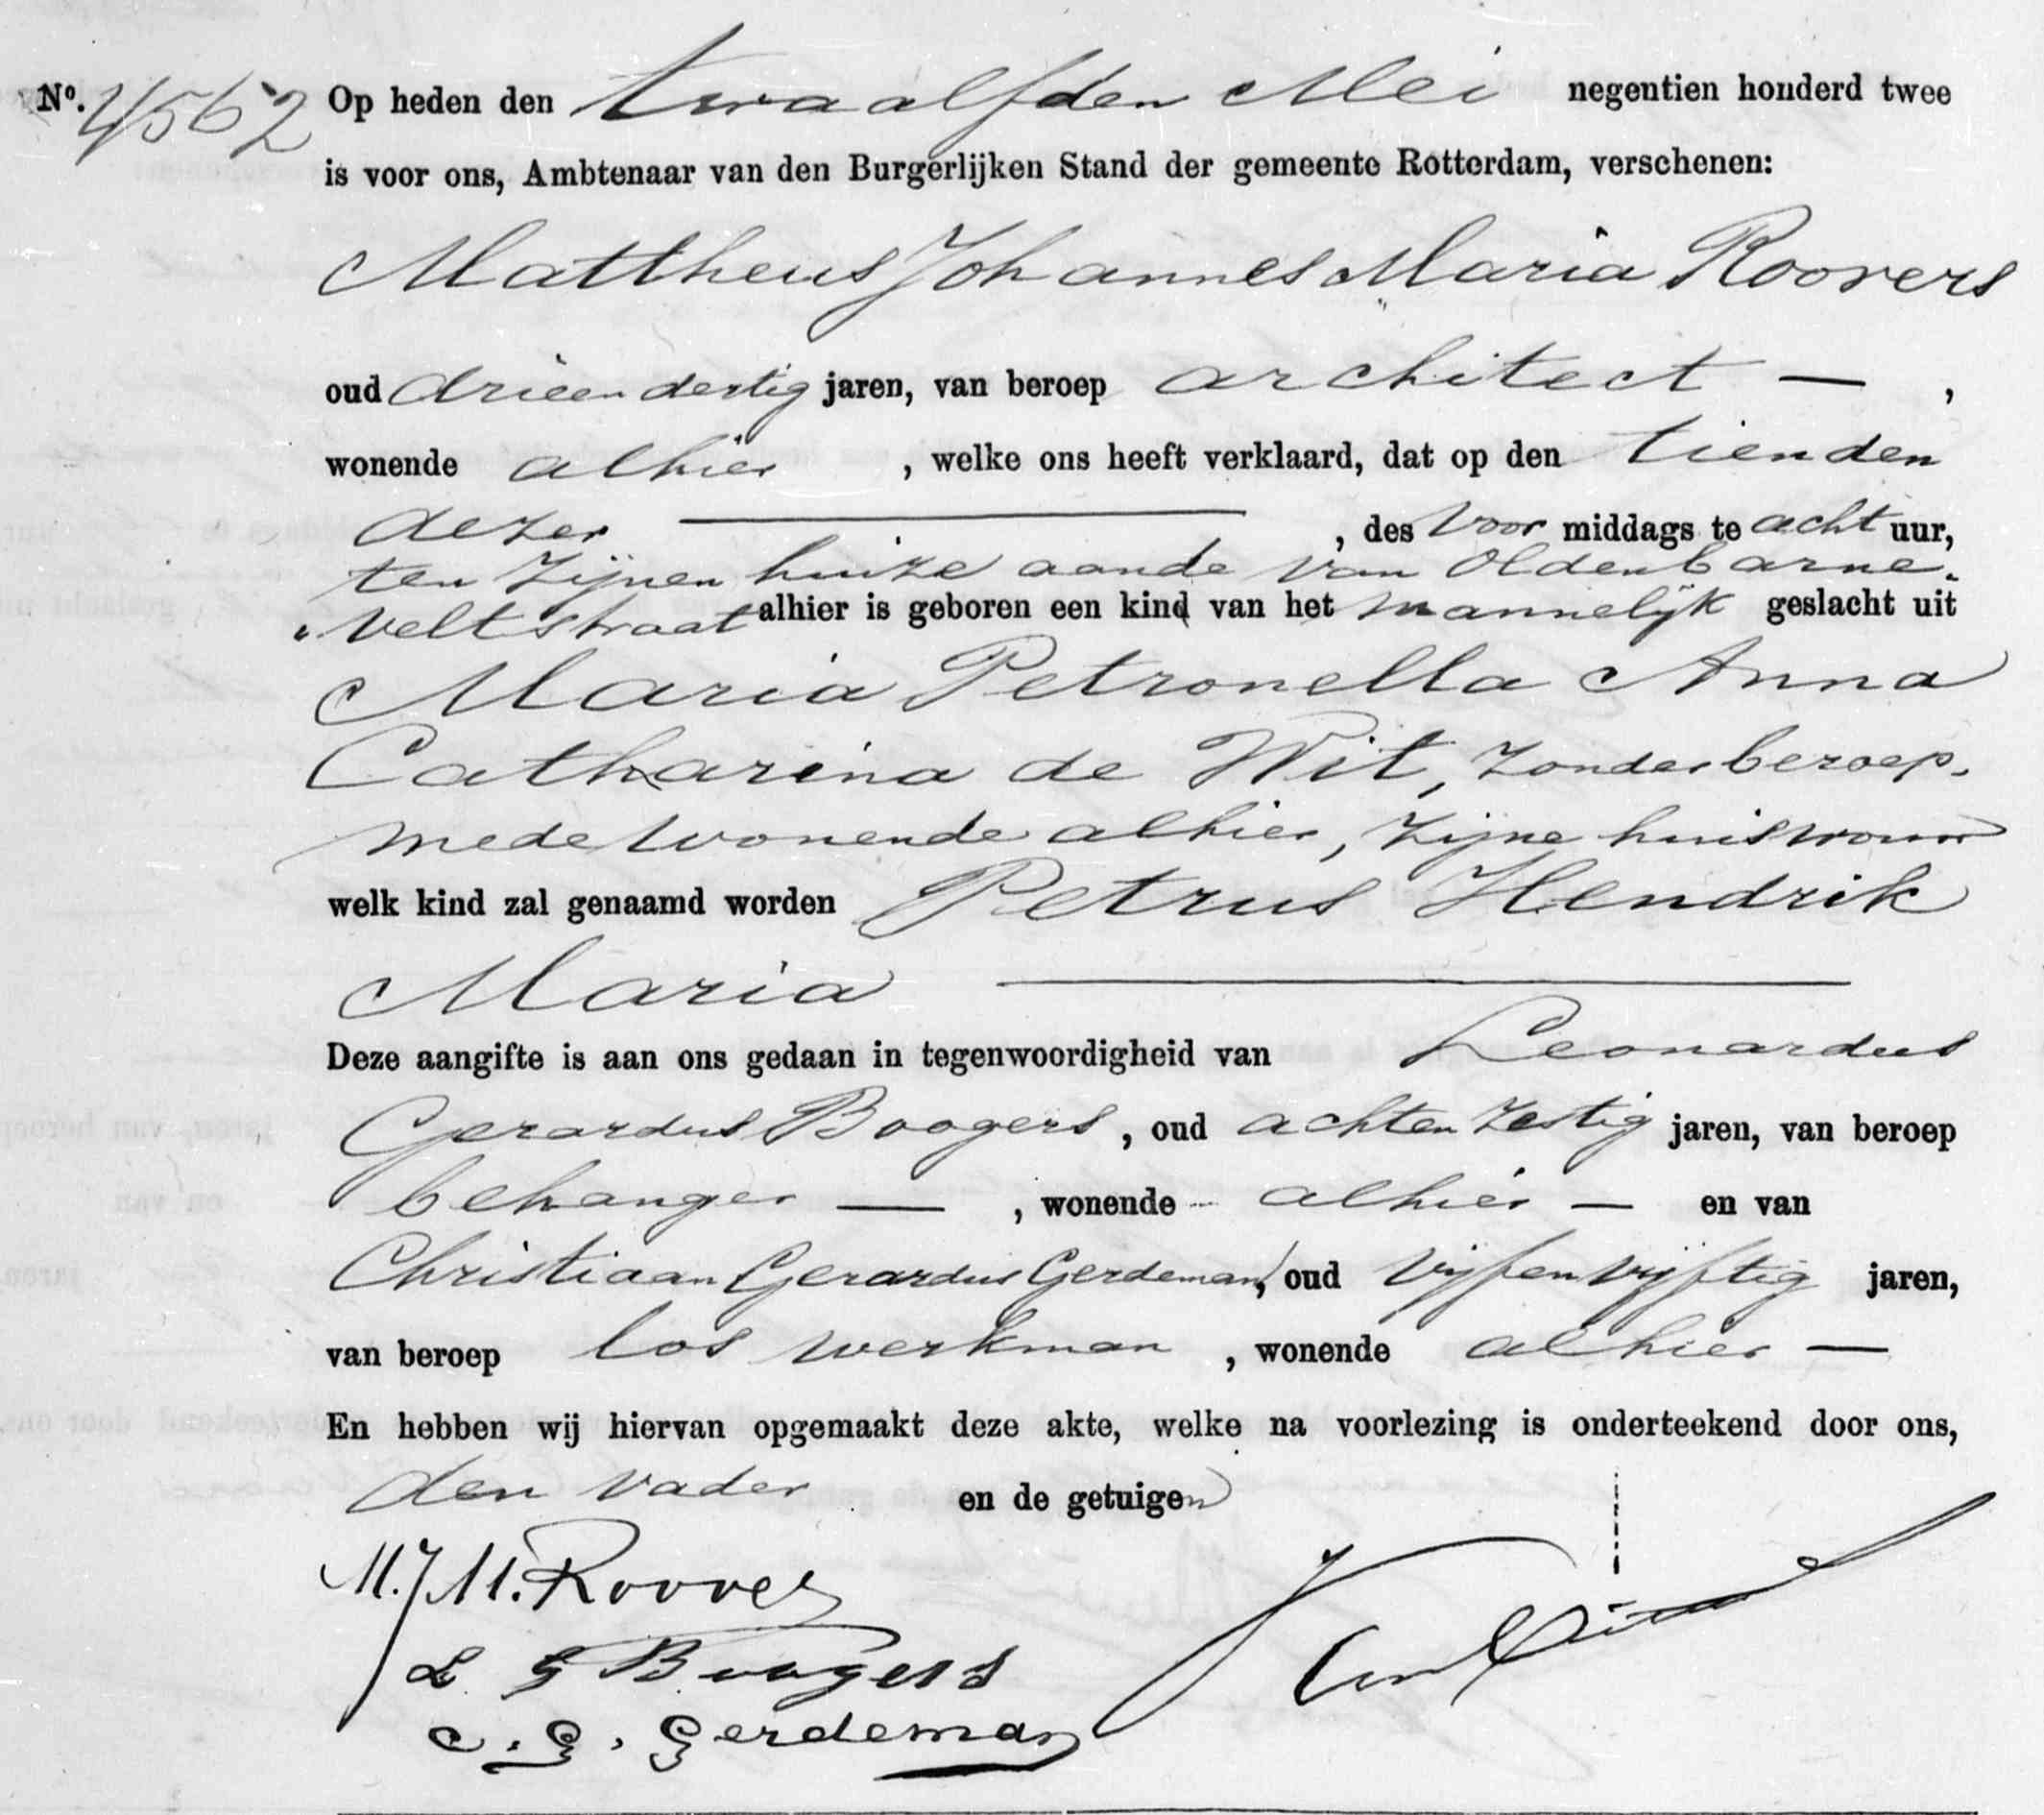 Nº. 4562 Op heden den twaalfden Mei negentien honderd twee
is voor ons, Ambtenaar van den Burgerlijken Stand der gemeente Rotterdam, verschenen:
Mattheus Johannes Maria Roovers
oud drieendertig jaren, van beroep architect — ,
wonende alhier , welke ons heeft verklaard, dat op den tienden
dezer — , des voor middags te acht uur,
ten zijnen huize aan de van Oldenbarne-
veltstraat alhier is geboren een kind van het mannelijk geslacht uit
Maria Petronella Anna
Catharina de Wit, zonder beroep,
mede wonende alhier, zijne huisvrouw
welk kind zal genaamd worden Petrus Hendrik
Maria —
Deze aangifte is aan ons gedaan in tegenwoordigheid van Leonardus
Gerardus Boogers , oud achtenzestig jaren, van beroep
behanger — , wonende alhier — en van
Christiaan Gerardus Gerdeman, oud vijfenvijftig jaren,
van beroep los werkman , wonende alhier —
En hebben wij hiervan opgemaakt deze akte, welke na voorlezing is onderteekend door ons,
den vader en de getuigen
M.J.M. Roovers
L G Boogers
C. G. Gerdeman